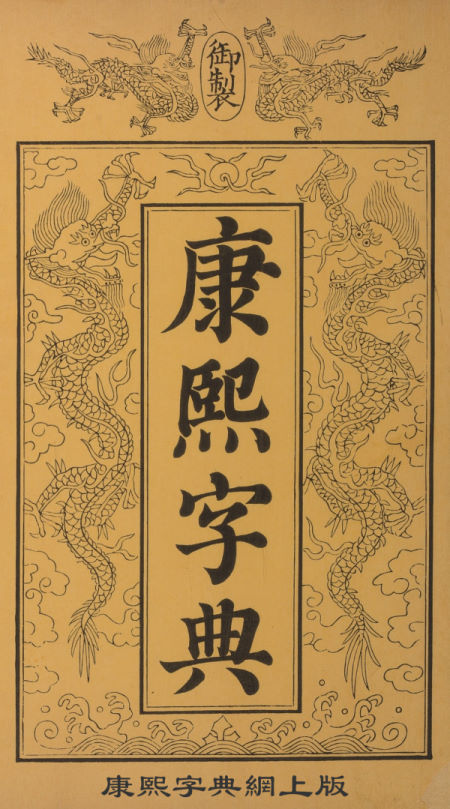 御製
康熙字典
康熙字典網上版